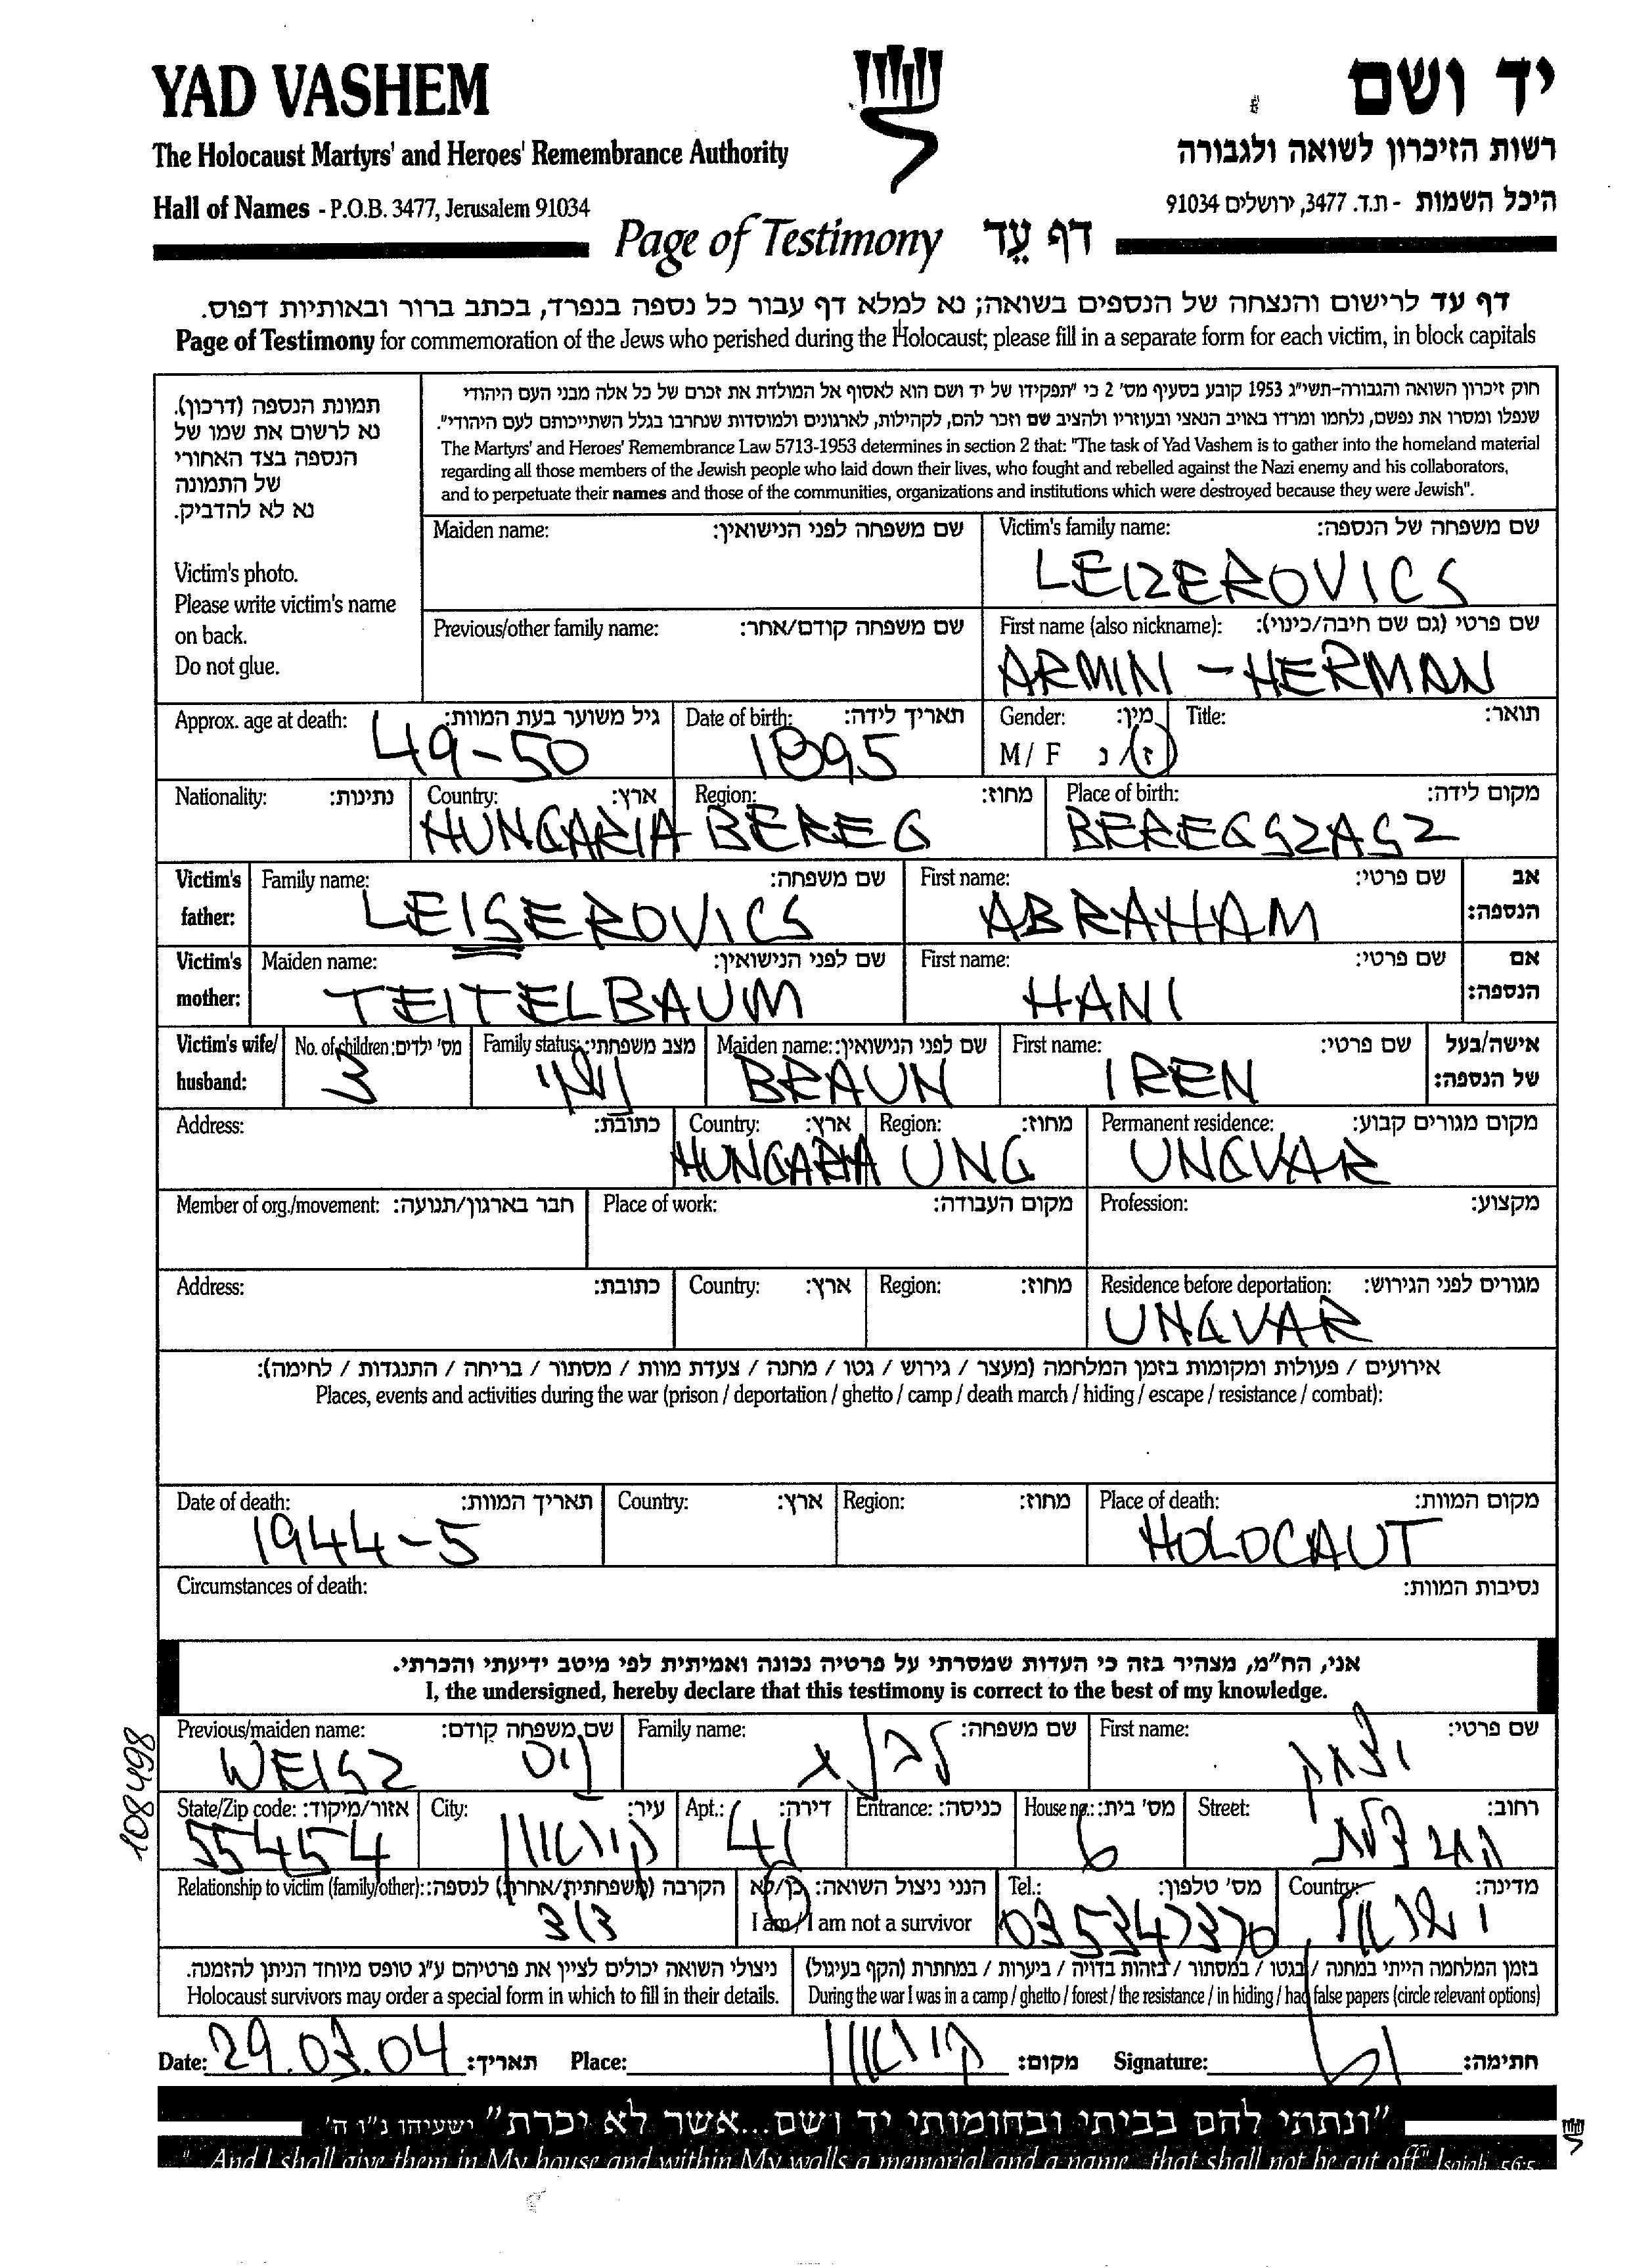 YAD VASHEM
יד ושם
The Holocaust Martyrs' and Heroes' Remembrance Authority
רשות הזיכרון לשואה ולגבורה
Hall of Names - P.O.B. 3477, Jerusalem 91034
היכל השמות - ת.ד. 3477, ירושלים 91034
Page of Testimony דף עֵד
דף עד לרישום והנצחה של הנספים בשואה; נא למלא דף עבור כל נספה בנפרד, בכתב ברור ובאותיות דפוס.
Page of Testimony for commemoration of the Jews who perished during the Holocaust; please fill in a separate form for each victim, in block capitals
תמונת הנספה (דרכון).
נא לרשום את שמו של
הנספה בצד האחורי
של התמונה
נא לא להדביק.
Victim's photo.
Please write victim's name
on back.
Do not glue.
חוק זיכרון השואה והגבורה-תשי"ג 1953 קובע בסעיף מס' 2 כי "תפקידו של יד ושם הוא לאסוף אל המולדת את זכרם של כל אלה מבני העם היהודי
שנפלו ומסרו את נפשם, נלחמו ומרדו באויב הנאצי ובעוזריו ולהציב שם וזכר להם, לקהילות, לארגונים ולמוסדות שנחרבו בגלל השתייכותם לעם היהודי".
The Martyrs' and Heroes' Remembrance Law 5713-1953 determines in section 2 that: "The task of Yad Vashem is to gather into the homeland material
regarding all those members of the Jewish people who laid down their lives, who fought and rebelled against the Nazi enemy and his collaborators,
and to perpetuate their names and those of the communities, organizations and institutions which were destroyed because they were Jewish".
Maiden name: שם משפחה לפני הנישואין:
Victim's family name: שם משפחה של הנספה:
LEIZEROVICS
Previous/other family name: שם משפחה קודם/אחר:
First name (also nickname): שם פרטי (גם שם חיבה/כינוי):
ARMIN - HERMAN
Approx. age at death: גיל משוער בעת המוות:
49-50
Date of birth: תאריך לידה:
1895
Gender: מין:
M / F ז/נ
Title: תואר:
Nationality: נתינות:
Country: ארץ:
HUNGARIA
Region: מחוז:
BEREG
Place of birth: מקום לידה:
BEREGSZASZ
Victim's father: אב הנספה:
Family name: שם משפחה:
LEISEROVICS
First name: שם פרטי:
ABRAHAM
Victim's mother: אם הנספה:
Maiden name: שם לפני הנישואין:
TEITELBAUM
First name: שם פרטי:
HANI
Victim's wife/husband: אישה/בעל של הנספה:
No. of children: מס' ילדים:
3
Family status: מצב משפחתי:
נשוי
Maiden name: שם לפני הנישואין:
BRAUN
First name: שם פרטי:
IREN
Address: כתובת:
Country: ארץ:
HUNGARIA
Region: מחוז:
UNG
Permanent residence: מקום מגורים קבוע:
UNGVAR
Member of org./movement: חבר בארגון/תנועה:
Place of work: מקום העבודה:
Profession: מקצוע:
Address: כתובת:
Country: ארץ:
Region: מחוז:
Residence before deportation: מגורים לפני הגירוש:
UNGVAR
אירועים / פעולות ומקומות בזמן המלחמה (מעצר / גירוש / גטו / מחנה / צעדת מוות / מסתור / בריחה / התנגדות / לחימה):
Places, events and activities during the war (prison / deportation / ghetto / camp / death march / hiding / escape / resistance / combat):
Date of death: תאריך המוות:
1944-5
Country: ארץ:
Region: מחוז:
Place of death: מקום המוות:
HOLOCAUT
Circumstances of death: נסיבות המוות:
אני, הח"מ, מצהיר בזה כי העדות שמסרתי על פרטיה נכונה ואמיתית לפי מיטב ידיעתי והכרתי.
I, the undersigned, hereby declare that this testimony is correct to the best of my knowledge.
108498
Previous/maiden name: שם משפחה קודם:
WEISZ וייס
Family name: שם משפחה:
First name: שם פרטי:
יצחק
State/Zip code: אזור/מיקוד:
55454
City: עיר:
קיראון
Apt.: דירה:
41
Entrance: כניסה:
House no.: מס' בית:
6
Street: רחוב:
Relationship to victim (family/other): הקרבה (משפחתית/אחרת) לנספה:
דוד
הנני ניצול השואה: כן/לא
I am / I am not a survivor
Tel.: מס' טלפון:
03 5347370
Country: מדינה:
ישראל
ניצולי השואה יכולים לציין את פרטיהם ע"ג טופס מיוחד הניתן להזמנה.
Holocaust survivors may order a special form in which to fill in their details.
בזמן המלחמה הייתי במחנה / בגטו / במסתור / בזהות בדויה / ביערות / במחתרת (הקף בעיגול)
During the war I was in a camp / ghetto / forest / the resistance / in hiding / had false papers (circle relevant options)
Date: 29.03.04 תאריך: Place: קיראון מקום: Signature: חתימה:
"ונתתי להם בביתי ובחומותי יד ושם...אשר לא יכרת" ישעיהו נ"ו ה'
"And I shall give them in My house and within My walls a memorial and a name...that shall not be cut off" Isaiah 56:5